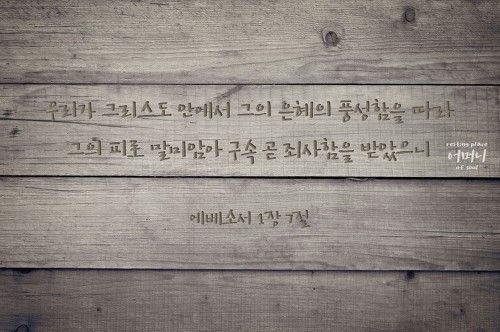 우리가 그리스도 안에서 그의 은혜의 풍성함을 따라
그의 피로 말미암아 구속 곧 죄사함을 받았으니
resting place
어머니
of soul
에베소서 1장 7절